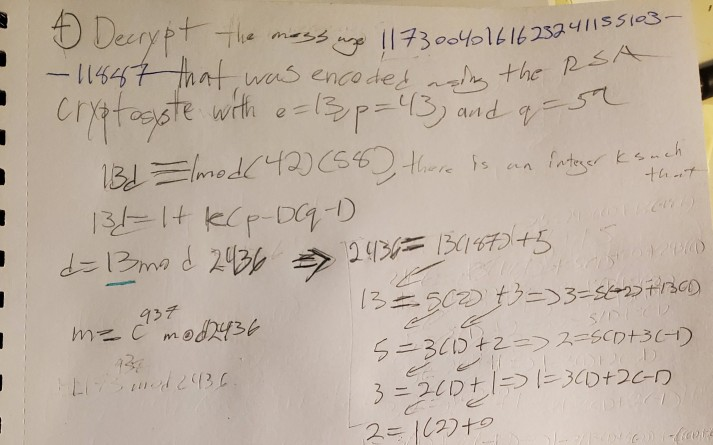 4) Decrypt the message 11730040161623241155103-
-118887 that was encoded using the RSA
Cryptosyste with e=13, p=43, and q=59
13d ≡ 1mod(42)(58), there is an integer k such
that
13d = 1 + k(p-1)(q-1)
d = 13 mod 2436 ⇒
m = c^937 mod 2436
937
mod 2436
2436 = 13(187)+5
13 = 5(2) + 3 => 3=5(-2)+13(1)
5 = 3(1) + 2 => 2=5(1)+3(-1)
3 = 2(1) + 1 => 1=3(1)+2(-1)
2 = 1(2)+0